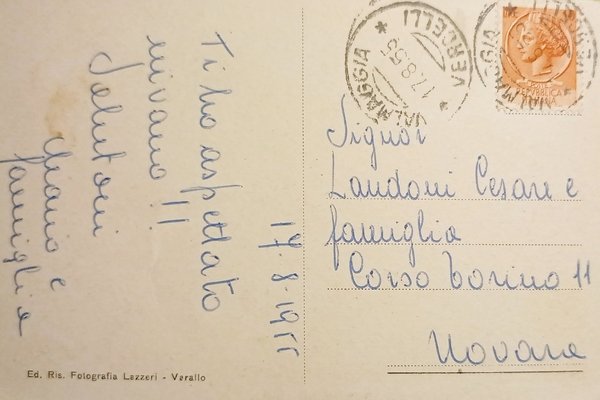 Ti ho aspettato
invano!!
Salutoni
famiglia
17-8-1955
Ed. Ris. Fotografia Lazzeri - Varallo
VALMAGGIA
VERCELLI
17.8.55
Signor
Landoni Cesare e
famiglia
Corso Torino 11
Novara